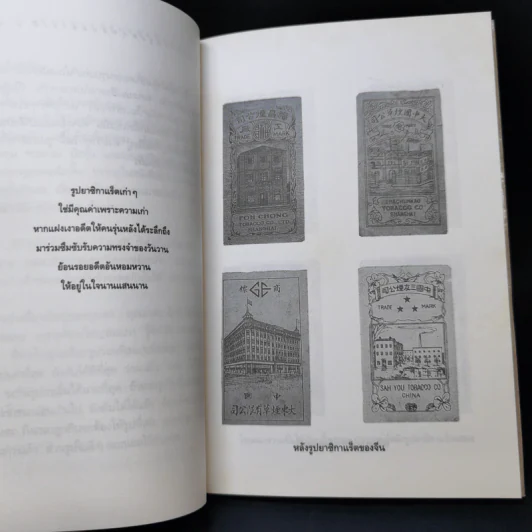 รูปยาซิกาแร็ตเก่า ๆ
ใช่มีคุณค่าเพราะความเก่า
หากแฝงเงาอดีตให้คนรุ่นหลังได้ระลึกถึง
มาร่วมซึมซับรับความทรงจำของวันวาน
ย้อนรอยอดีตอันหอมหวาน
ให้อยู่ในใจนานแสนนาน
TRADE MARK
FOH CHONG
TOBACCO CO., LTD.
SHANGHAI
司公草煙國中大
TOBACCO CO
商標
司公限有草煙東大
司公煙立三國中
TRADE MARK
SAH YOU TOBACCO CO
CHINA
หลังรูปยาซิกาแร็ตของจีน